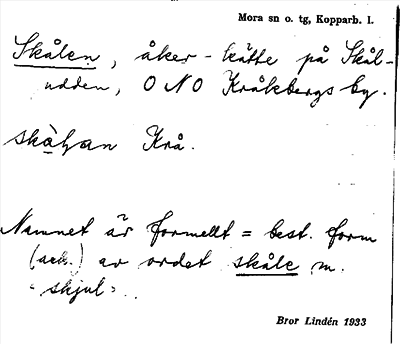 Mora sn o. tg, Kopparb. l.
Skålen, åker-täkte på Skål-
udden, O N O Kråkbergs by.
Krå.
Namnet är formellt = best. form
(ack.) av ordet skåle m.
"skjul".
Bror Lindén 1933